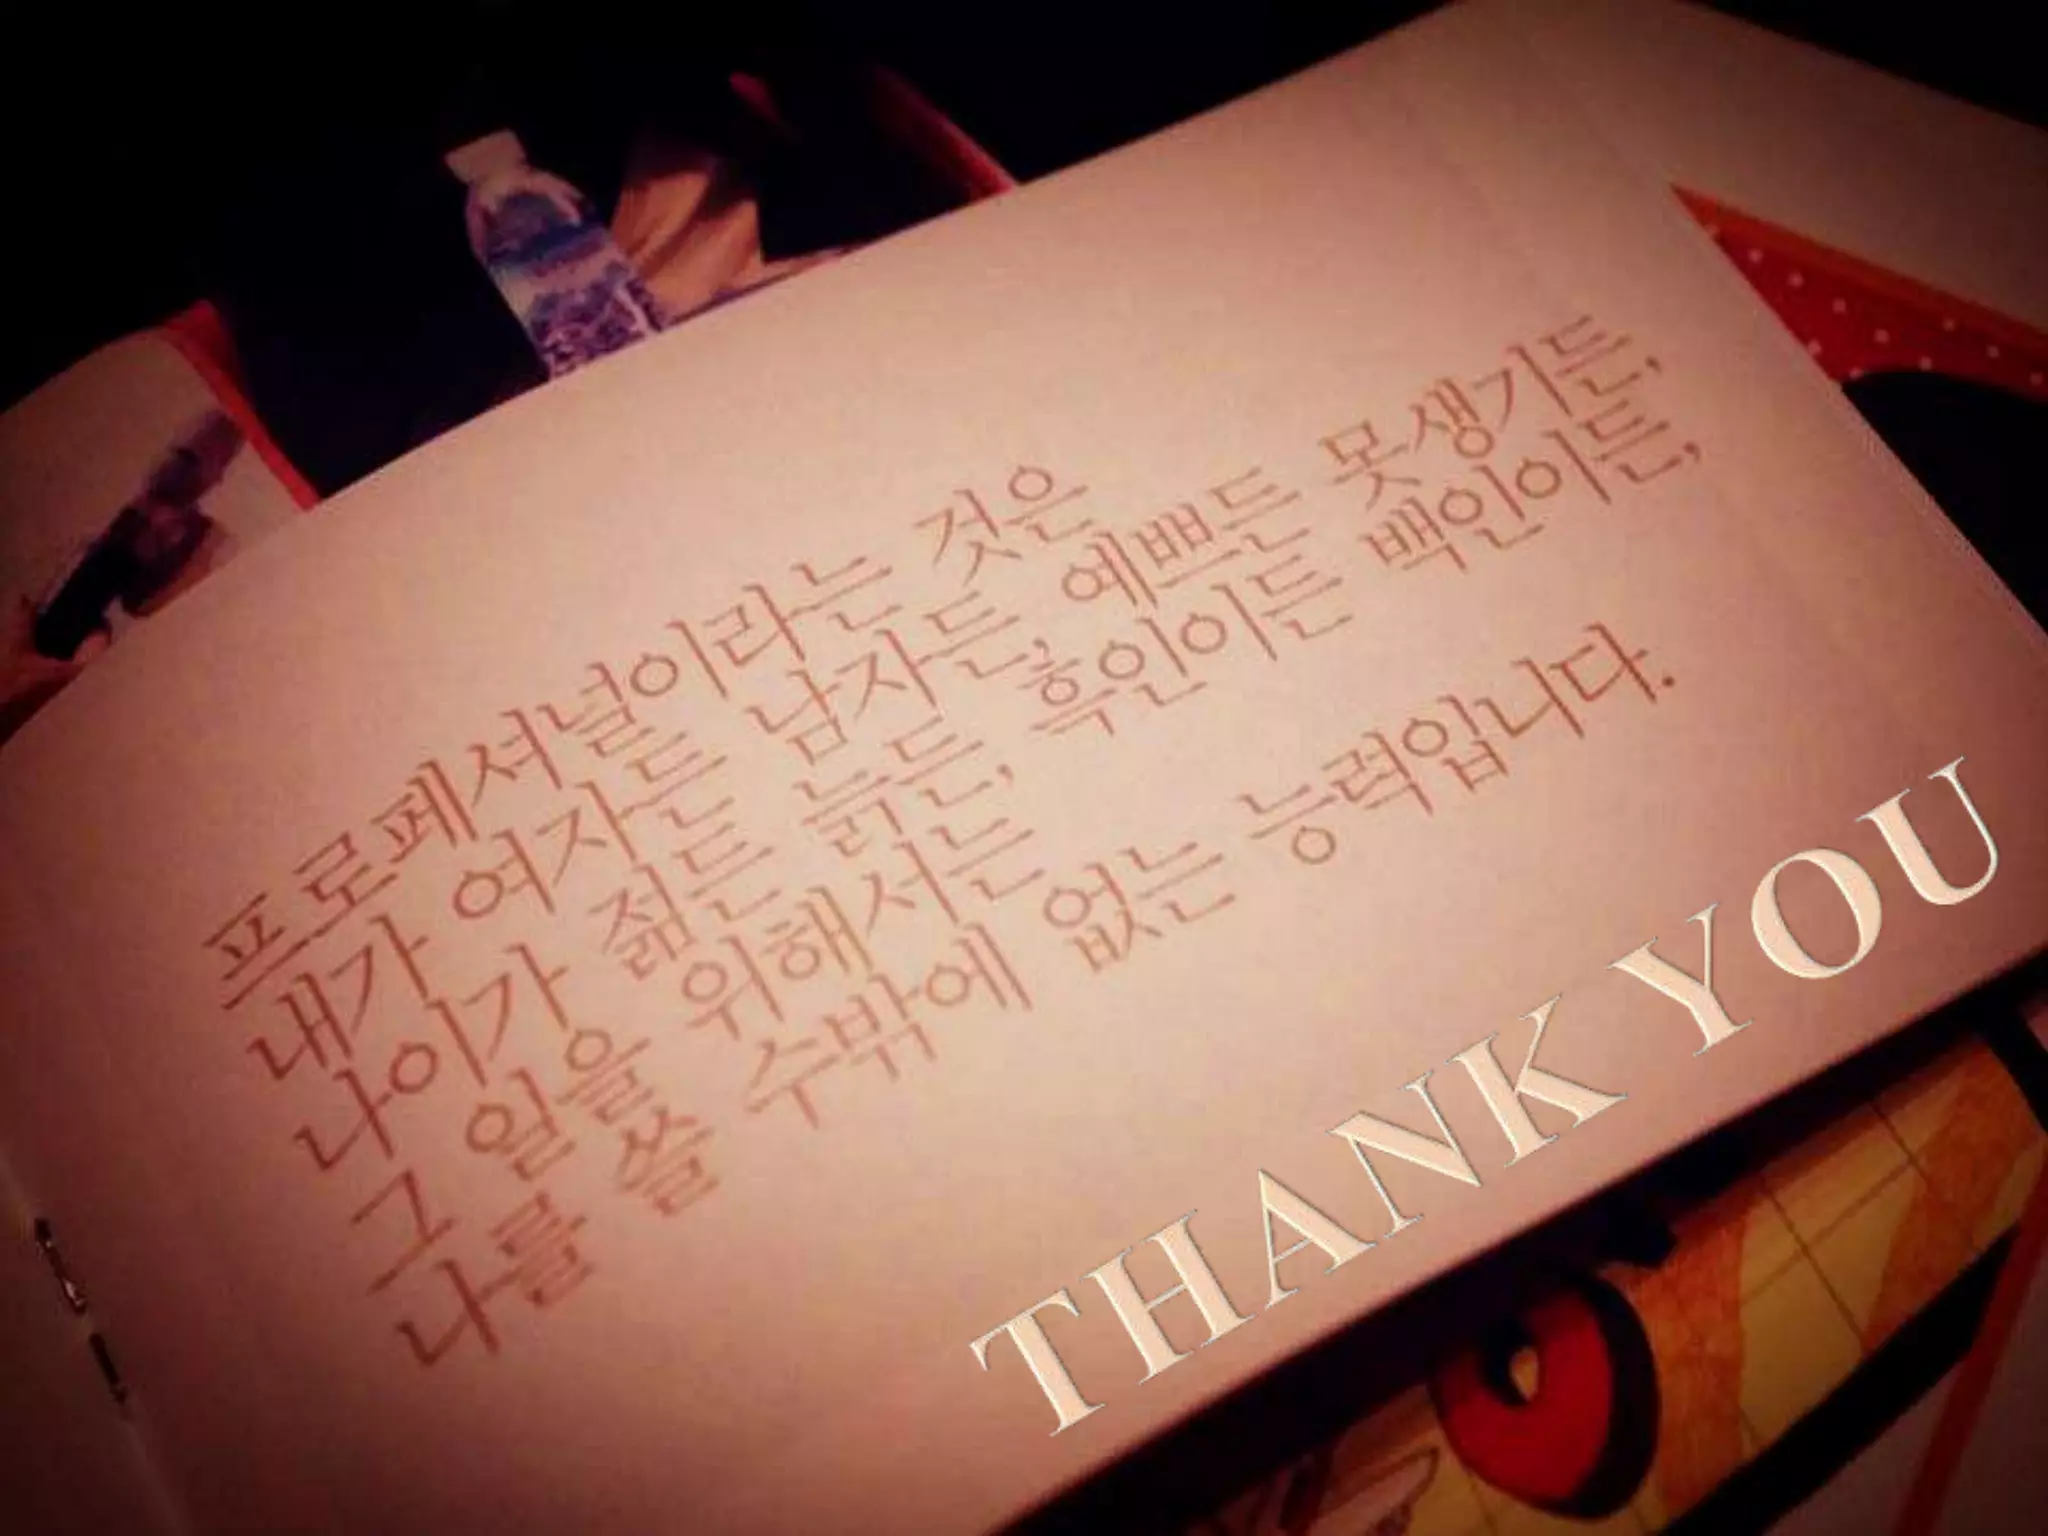 프로페셔널이라는 것은
내가 여자든 남자든, 예쁘든 못생기든,
나이가 젊든 늙든, 흑인이든 백인이든,
그 일을 위해서는
나를 쓸 수밖에 없는 능력입니다.
THANK YOU